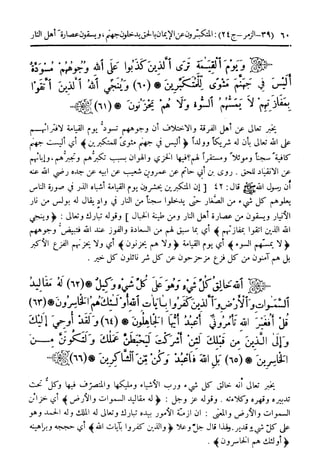 ٦٠ (٣٩-الزمر-ج٢٤): المتكبرون عن الإيمان بالحق يدخلون جهنم، ويسقون عصارة أهل النار
وَيَوْمَ ٱلْقِيَـٰمَةِ تَرَى ٱلَّذِينَ كَذَبُوا عَلَى ٱللَّهِ وُجُوهُهُم مُّسْوَدَّةٌ
أَلَيْسَ فِى جَهَنَّمَ مَثْوًى لِّلْمُتَكَبِّرِينَ * (٦٠) وَيُنَجِّى ٱللَّهُ ٱلَّذِينَ ٱتَّقَوْا
بِمَفَازَتِهِمْ لَا يَمَسُّهُمُ ٱلسُّوٓءُ وَلَا هُمْ يَحْزَنُونَ * (٦١)
يخبر تعالى عن أهل الفرقة والاختلاف أن وجوههم تسودُّ يوم القيامة لافترائهم
على الله تعالى بأن له شريكاً وولداً ﴿ أليس في جهنم مثوى للمتكبرين ﴾ أي أليست جهنم
كافيةً سجناً وموئلاً ومستقراً لهم؟ فيها الخزي والهوان بسبب تكبرهم وتجبرهم، وإبائهم
عن الانقياد للحق. روى بن أبي حاتم عن عمرو بن شعيب عن ابيه عن جده رضي الله عنه
أن رسول الله ﷺ قال: ٤٢ [ إن المتكبرين يحشرون يوم القيامة أشباه الذر في صورة الناس
يعلوهم كل شيء من الصغار حتى يدخلوا سجناً من النار في واد يقال له بولس من نار
الأنيار ويسقون من عصارة أهل النار ومن طينة الخبال ] وقوله تبارك وتعالى: ﴿ وينجي
الله الذين اتقوا بمفازتهم ﴾ أي بما سبق لهم من السعادة والفوز عند الله فتبيض وجوههم
﴿ لا يمسهم السوء ﴾ أي يوم القيامة ﴿ ولا هم يحزنون ﴾ أي ولا يحزنهم الفزع الأكبر
بل هم آمنون من كل فزع مزحزحون عن كل شر نائلون كل خير .
ٱللَّهُ خَالِقُ كُلِّ شَىْءٍ وَهُوَ عَلَىٰ كُلِّ شَىْءٍ وَكِيلٌ * (٦٢) لَهُ مَقَالِيدُ
ٱلسَّمَـٰوَاتِ وَٱلْأَرْضِ وَٱلَّذِينَ كَفَرُوا بِـَٔايَاتِ ٱللَّهِ أُولَـٰئِكَ هُمُ ٱلْخَاسِرُونَ * (٦٣)
قُلْ أَفَغَيْرَ ٱللَّهِ تَأْمُرُونِّى أَعْبُدُ أَيُّهَا ٱلْجَاهِلُونَ * (٦٤) وَلَقَدْ أُوحِىَ إِلَيْكَ
وَإِلَى ٱلَّذِينَ مِن قَبْلِكَ لَئِنْ أَشْرَكْتَ لَيَحْبَطَنَّ عَمَلُكَ وَلَتَكُونَنَّ مِـــنَ
ٱلْخَاسِرِينَ * (٦٥) بَلِ ٱللَّهَ فَٱعْبُدْ وَكُن مِّنَ ٱلشَّاكِرِينَ * (٦٦)
يخبر تعالى أنه خالق كل شيء ورب الأشياء ومليكها والمتصرف فيها وكلٌّ تحت
تدبيره وقهره وكلاءته . وقوله عز وجل : ﴿ له مقاليد السموات والأرض ﴾ أي خزائن
السموات والأرض والمعنى : ان ازمة الأمور بيده تبارك وتعالى له الملك وله الحمد وهو
على كل شيء قدير. ولهذا قال جل وعلا ﴿ والذين كفروا بآيات الله ﴾ أي حججه وبراهينه
﴿ أولئك هم الخاسرون ﴾ .